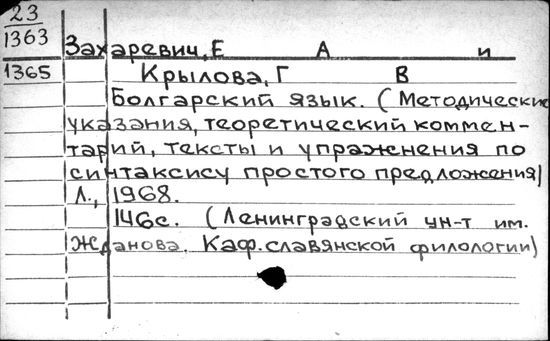 23
1363
Захаревич, Е А и
1365 Крылова, Г В
Болгарский язык. (Методические
указания, теоретический коммен-
тарий, тексты и упражнения по
синтаксису простого предложения)
Л., 1968.
146с. (Ленинградский ун-т им.
Жданова. Каф. славянской филологии)